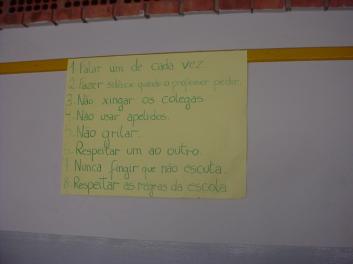 1. Falar um de cada vez.
2. Fazer silêncio quando o professor pedir.
3. Não xingar os colegas
4. Não usar apelidos.
5. Não gritar.
6. Respeitar um ao outro.
7. Nunca fingir que não escuta.
8. Respeitar as regras da escola